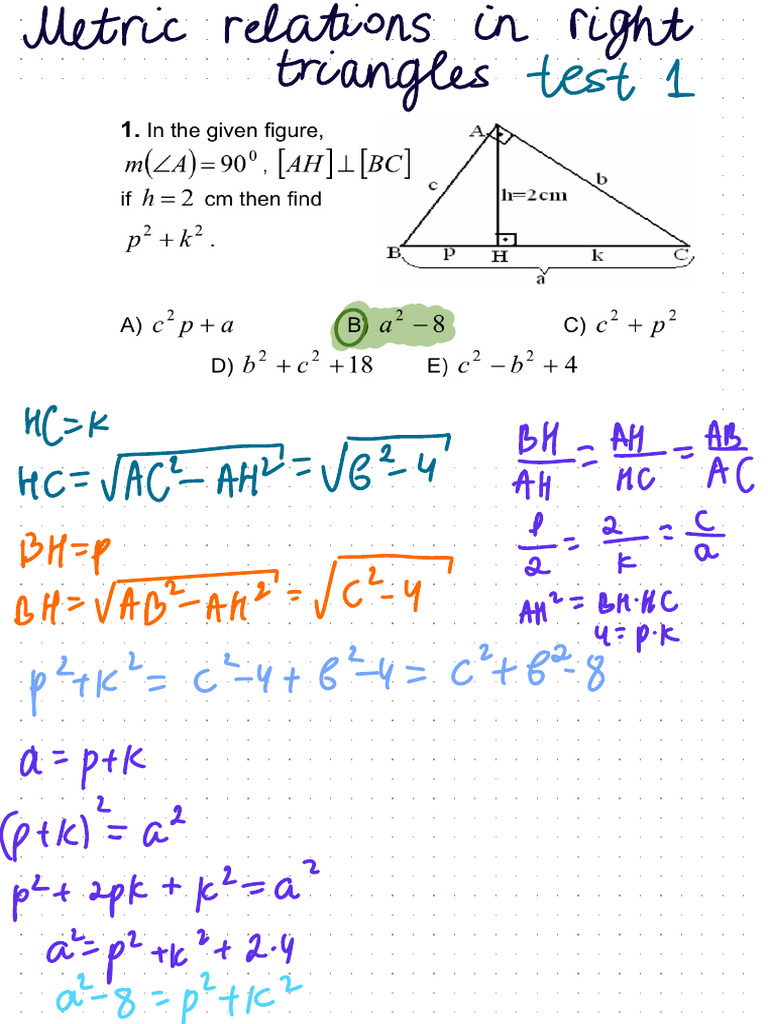 Metric relations in right
triangles test 1
1. In the given figure,
m(∠A) = 90⁰, [AH] ⊥ [BC]
if h = 2 cm then find
p² + k².
A
c
b
h=2cm
B p H k C
a
A) c²p + a B) a² − 8 C) c² + p²
D) b² + c² + 18 E) c² − b² + 4
HC = k
HC = √(AC² − AH²) = √(в² − 4)
BH/AH = AH/HC = AB/AC
p/2 = 2/k = c/a
AH² = BH·HC
4 = p·k
BH = p
BH = √(AB² − AH²) = √(c² − 4)
p² + k² = c² − 4 + в² − 4 = c² + в² − 8
a = p + k
(p + k)² = a²
p² + 2pk + k² = a²
a² = p² + k² + 2·4
a² − 8 = p² + k²